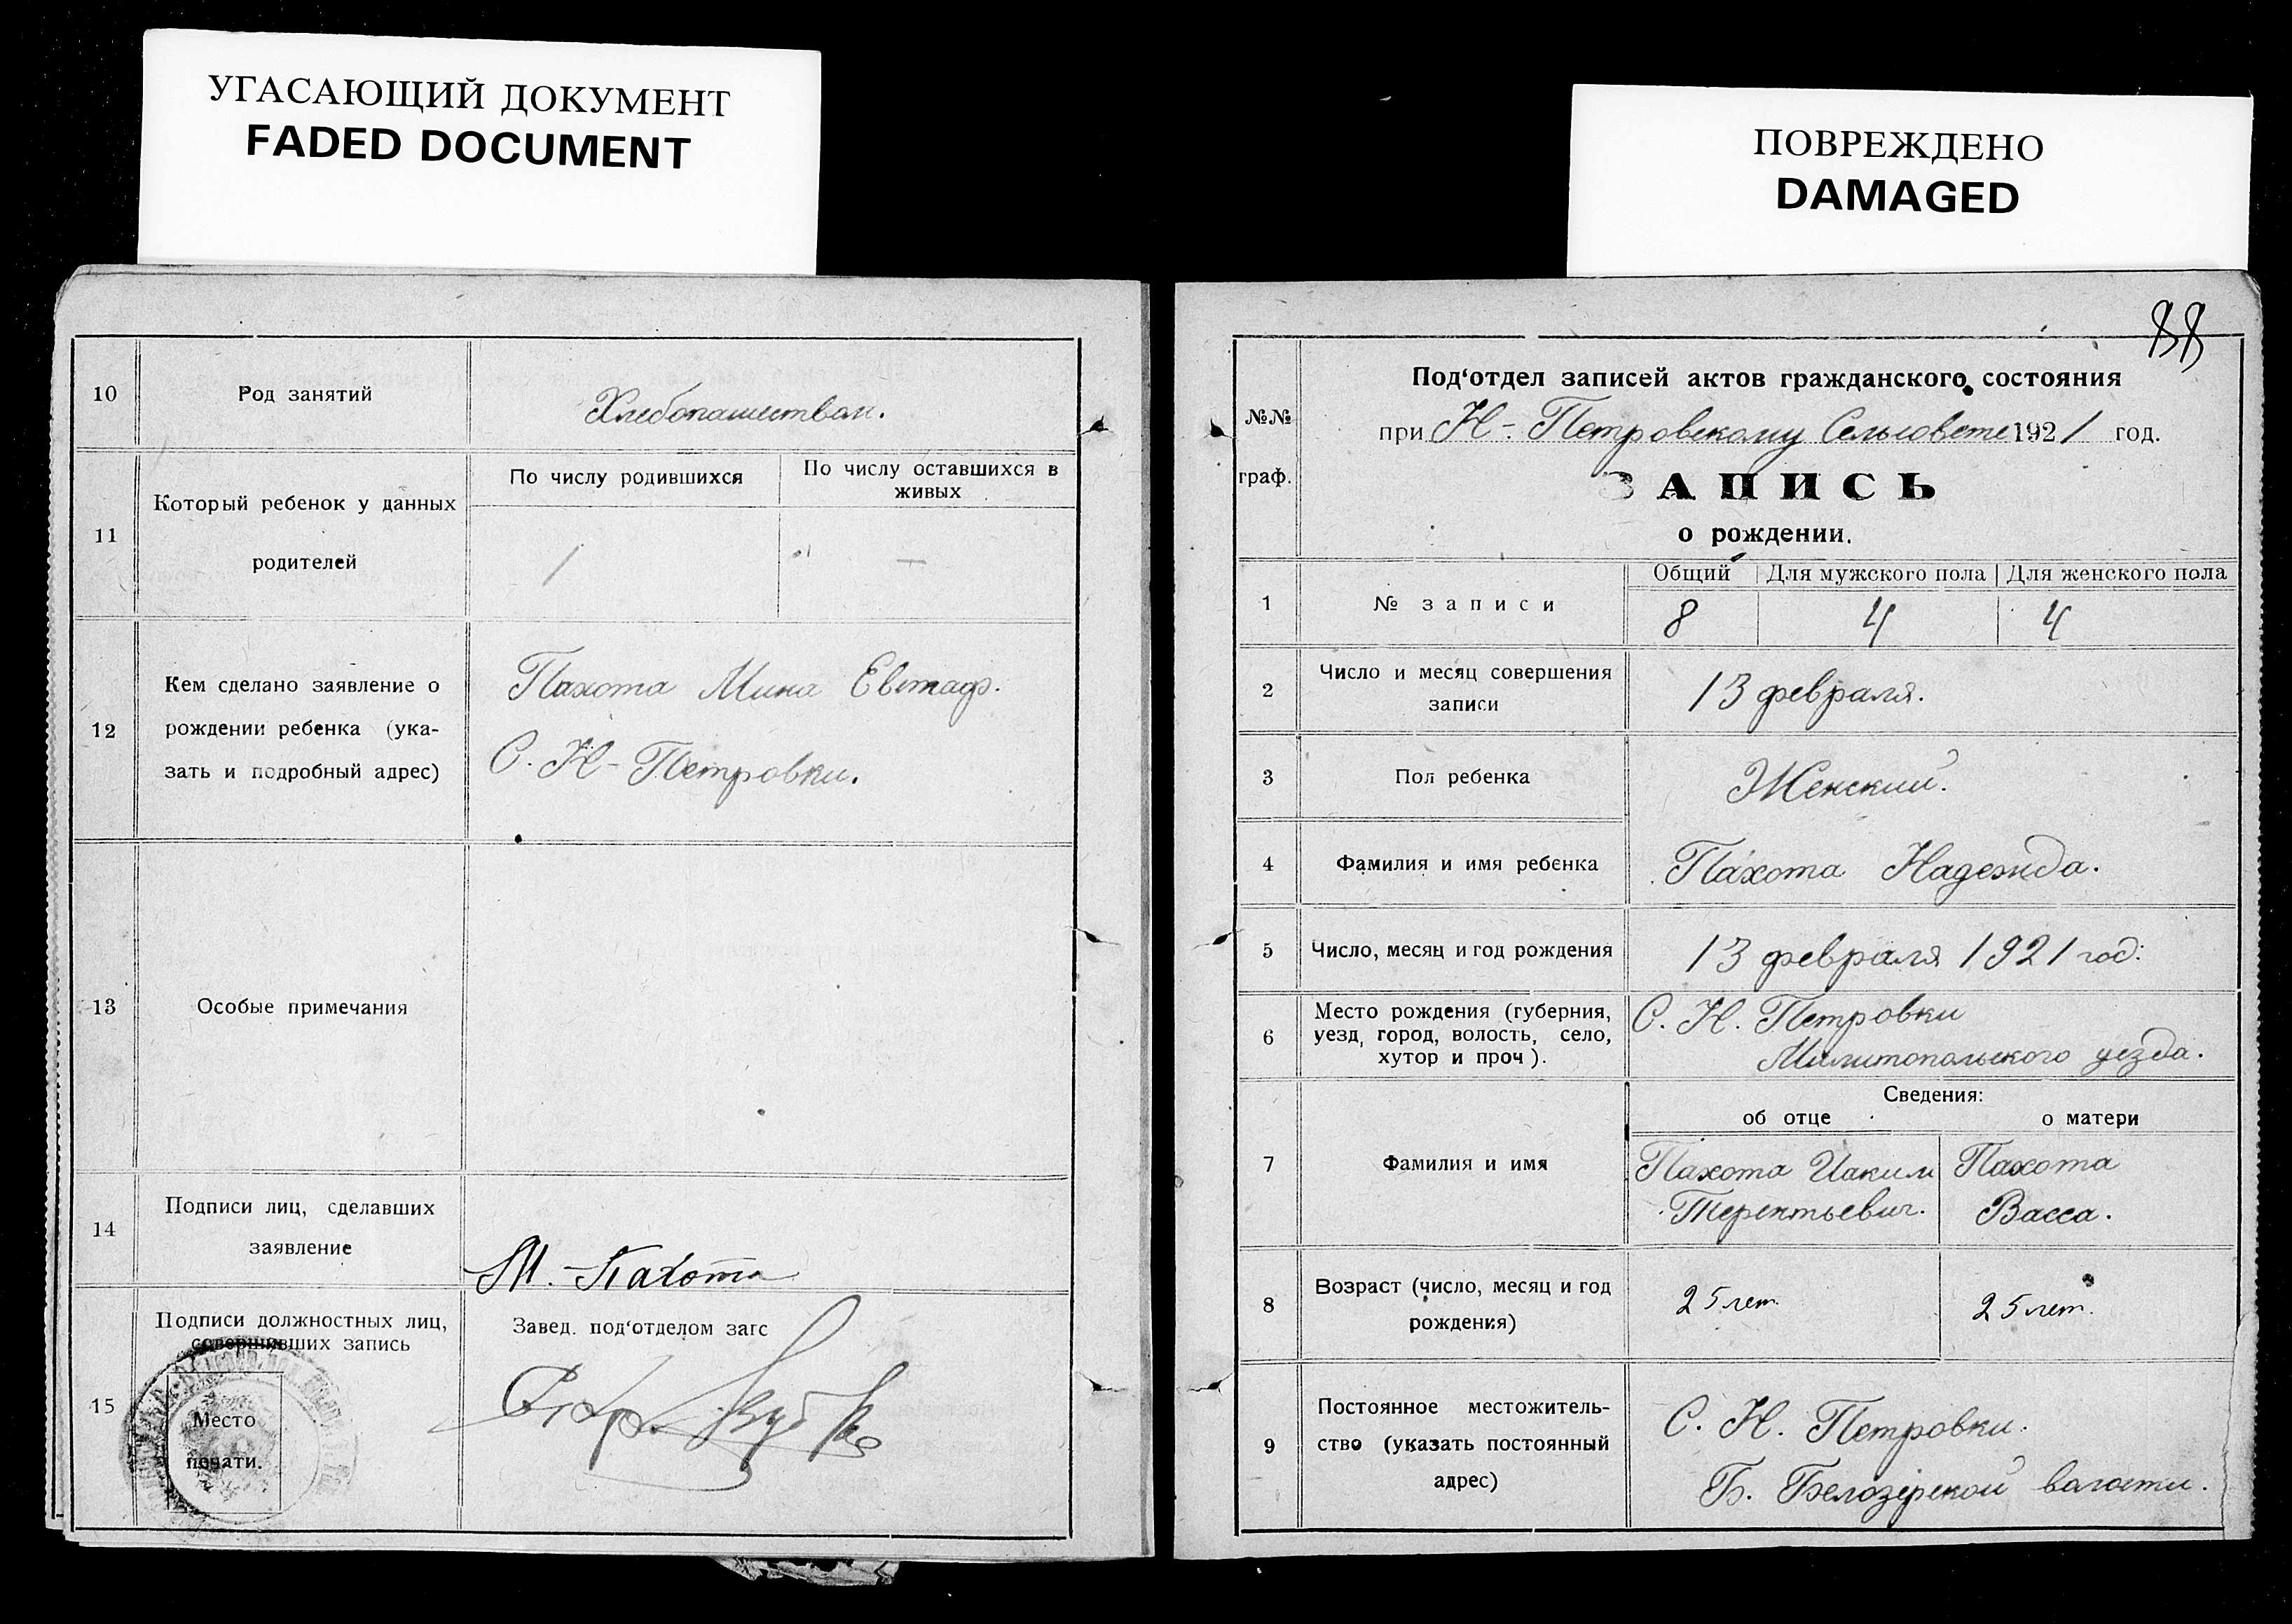 УГАСАЮЩИЙ ДОКУМЕНТ
FADED DOCUMENT
10
Род занятий
Хлебопашеством.
11
Который ребенок у данных
родителей
По числу родившихся
По числу оставшихся в
живых
1
—
12
Кем сделано заявление о
рождении ребенка (ука-
зать и подробный адрес)
Пахота Мина Евстаф.
С. Н-Петровки.
13
Особые примечания
14
Подписи лиц, сделавших
заявление
М. Пахота
15
Подписи должностных лиц,
совершивших запись
Место
печати.
Завед. под‘отделом загс
ПОВРЕЖДЕНО
DAMAGED
88
№№
граф.
Под‘отдел записей актов гражданского состояния
при Н-Петровскому Сельсовете 1921 год.
ЗАПИСЬ
о рождении.
1
№ записи
Общий
Для мужского пола
Для женского пола
8
4
4
2
Число и месяц совершения
записи
13 февраля.
3
Пол ребенка
Женский.
4
Фамилия и имя ребенка
Пахота Надежда.
5
Число, месяц и год рождения
13 февраля 1921 год:
6
Место рождения (губерния,
уезд, город, волость, село,
хутор и проч).
С. Н. Петровки
Милитопольского уезда.
Сведения:
об отце
о матери
7
Фамилия и имя
Пахота Иаким
Терентьевич.
Пахота
Васса.
8
Возраст (число, месяц и год
рождения)
25 лет.
25 лет.
9
Постоянное местожитель-
ство (указать постоянный
адрес)
С. Н. Петровки.
Б. Белозерской волости.